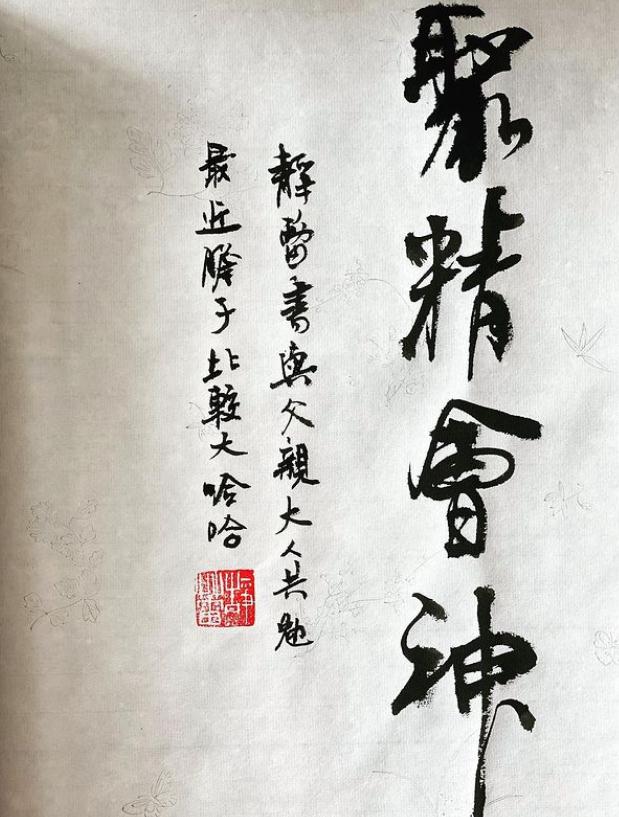 聚精會神
靜 書與父親大人共勉
最近膽子比較大哈哈